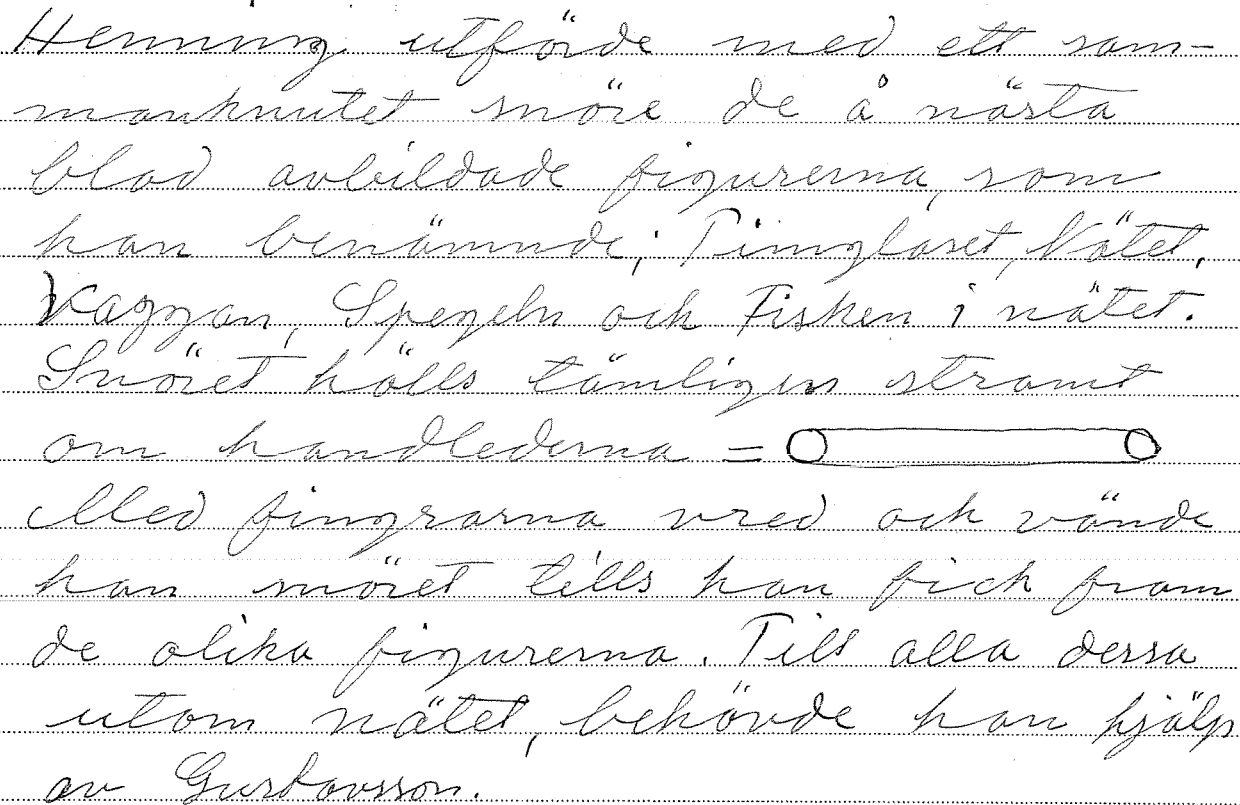 Henning utförde med ett sam-
manknutet snöre de å nästa
blad avbildade figurerna, som
han benämnde; Timglaset, Nätet,
Vaggan, Spegeln och Fisken i nätet.
Snöret hölls tämligen stramt
om handlederna =
Med fingrarna vred och vände
han snöret tills han fick fram
de olika figurerna. Till alla dessa
utom nätet, behövde han hjälp
av Gustavsson.